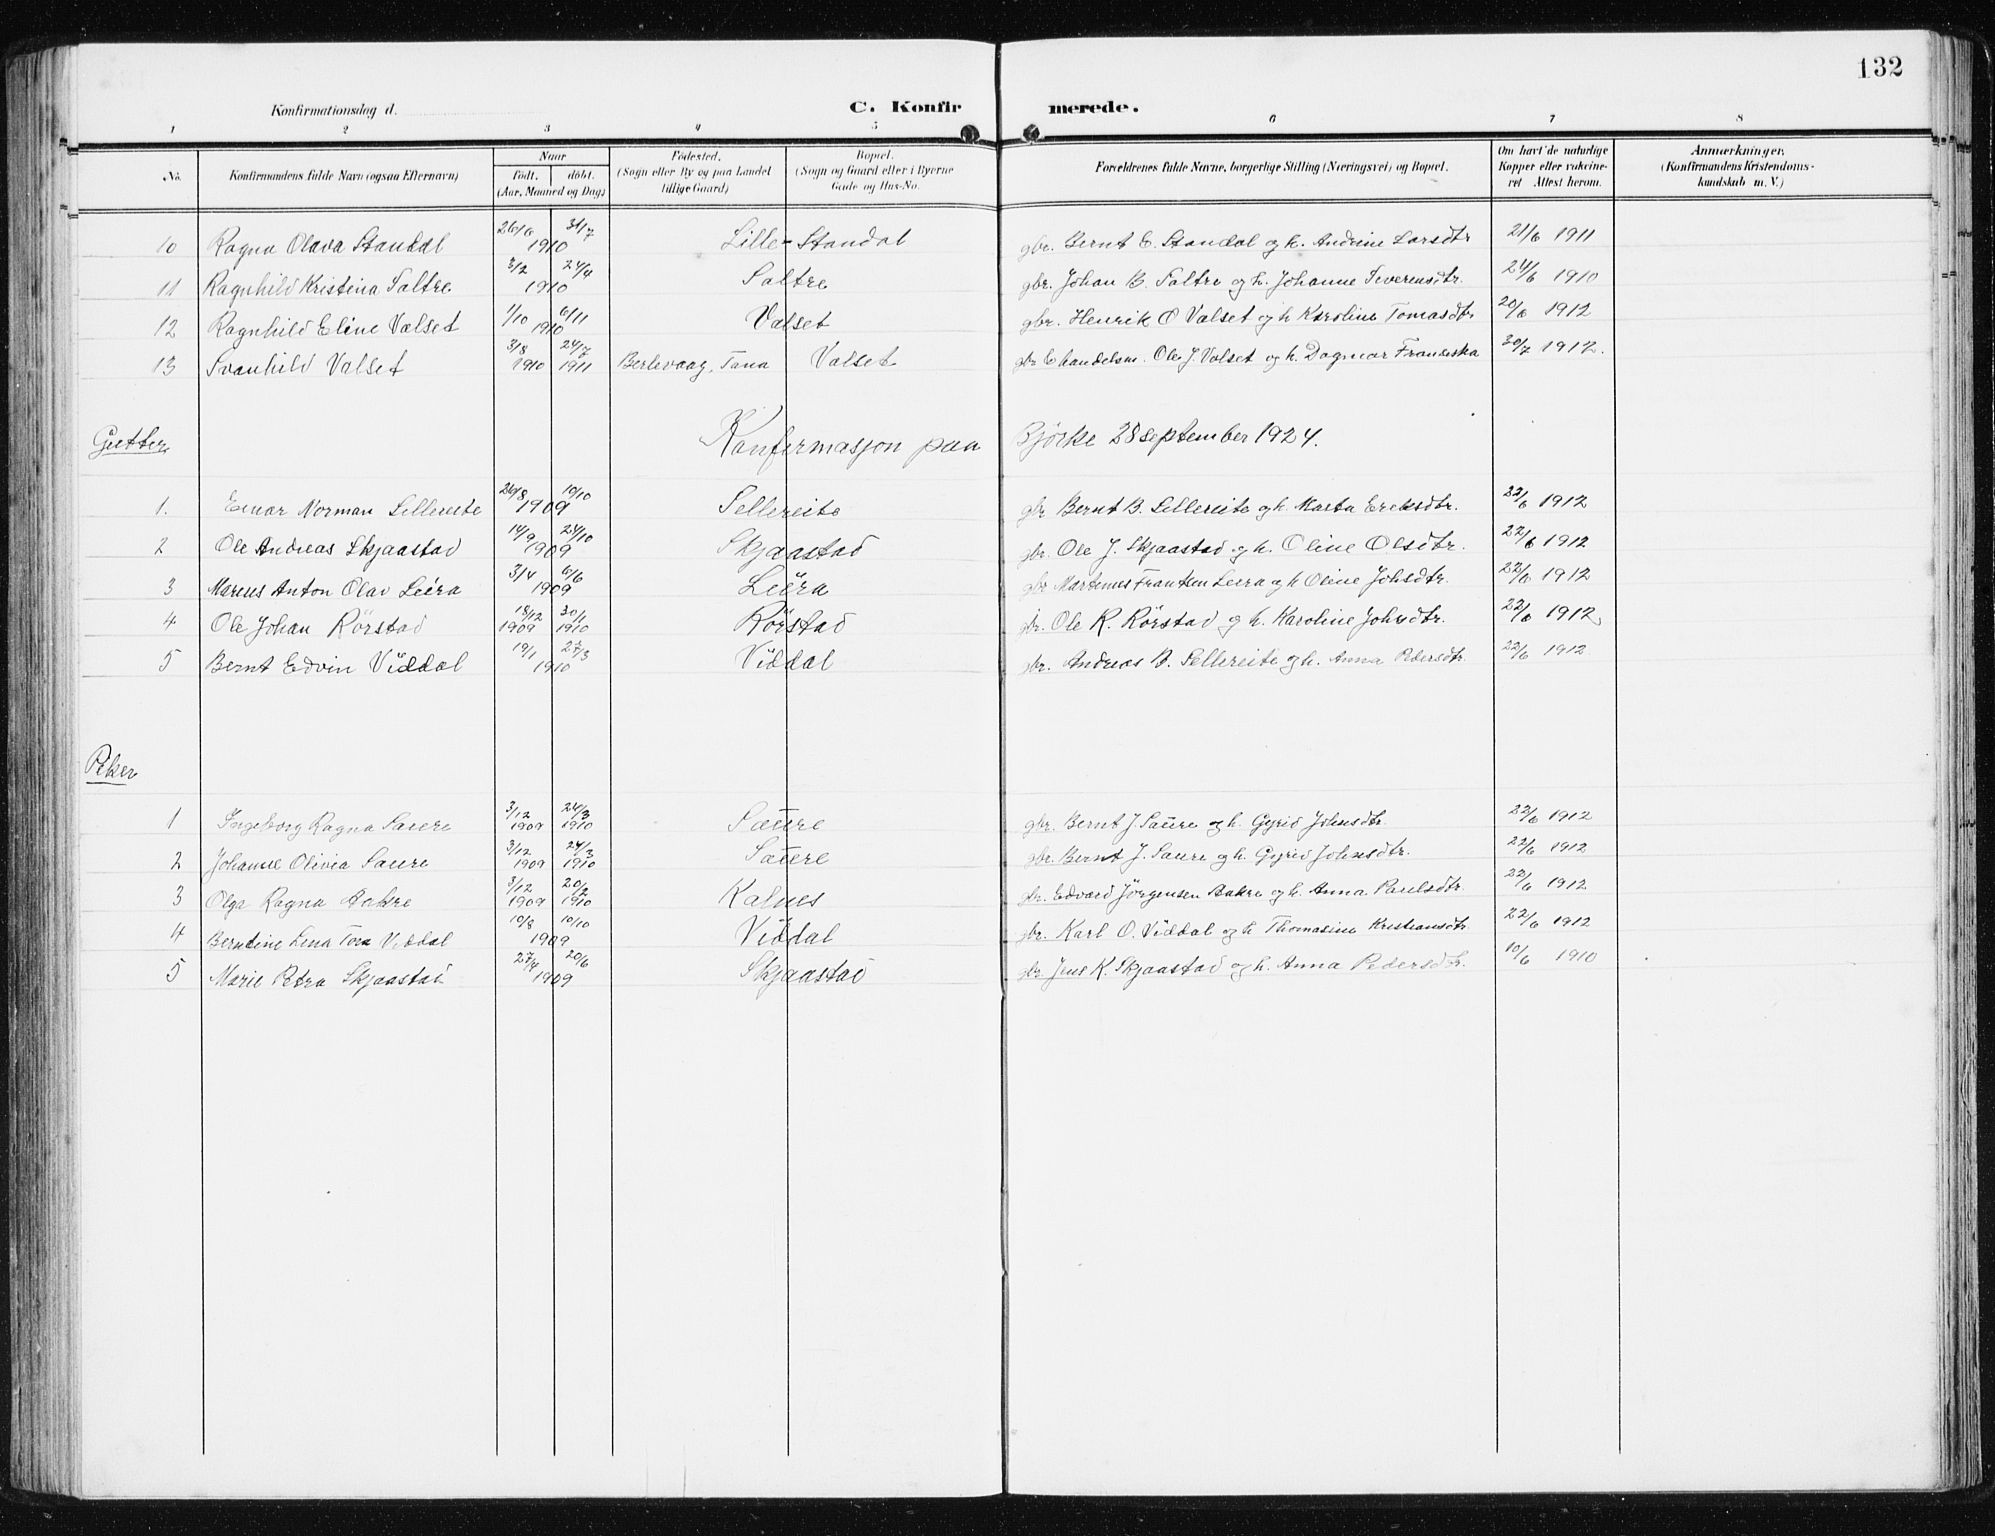 132
Konfirmationsdag d. C. Konfirmerede.
1 2 3 4 5 6 7 8
No. Konfirmandens fulde Navn (ogsaa Efternavn) Naar født. døbt. (Aar, Maaned og Dag) Fødested. (Sogn eller By og paa Landet tillige Gaard) Bopæl. (Sogn og Gaard eller i Byerne Gade og Hus-No. Forældrenes fulde Navne, borgerlige Stilling (Næringsvei) og Bopæl. Om havt de naturlige Kopper eller vakcineret Attest herom. Anmærkninger. (Konfirmandens Kristendomskundskab m. V.)
10 Ragna Olava Standal 26/6 31/7 1910 Lille-Standal gbr. Bernt E. Standal og h. Andrine Larsdtr 21/6 1911
11 Ragnhild Kristina Saltre 3/2 24/4 1910 Saltre gbr. Johan B. Saltre og h. Johanne Severensdtr. 24/6 1910
12 Ragnhild Eline Valset 1/10 6/11 1910 Valset gbr. Henrik O Valset og h Karoline Tomasdtr 20/6 1912
13 Svanhild Valset 3/8 1910 24/7 1911 Berlevaag, Tana Valset handelsm. Ole J. Valset og h. Dagmar Franciska 30/7 1912.
Gutter Konfirmasjon paa Bjørke 28 september 1924.
1. Einar Norman Sellereite 26/8 10/10 1909 Sellereite gbr Bernt B. Sellereite og h. Marta Ereksdtr. 22/6 1912
2 Ole Andreas Skjaastad 14/9 24/10 1909 Skjaastad gbr. Ole J. Skjaastad og h. Oline Olsdtr. 22/6 1912
3 Marius Anton Olav Leira 3/4 6/6 1909 Leira gbr Martinus Frantsen Leira og h Oline Johsdtr. 22/6 1912
4 Ole Johan Rörstad 18/12 1909 30/1 1910 Rörstad gbr. Ole R. Rörstad og h. Karoline Johsdtr. 22/6 1912
5 Bernt Edvin Viddal 19/1 27/3 1910 Viddal gbr. Andreas B. Sellereite og h. Anna Pedersdtr. 22/6 1912
Piker
1 Ingeborg Ragna Saure 3/12 1909 24/3 1910 Saure gbr. Bernt J. Saure og h. Gyrid Johnsdtr. 22/6 1912
2 Johanne Olivia Saure 3/12 1909 24/3 1910 Saure gbr. Bernt J. Saure og h. Gyrid Johnsdtr. 22/6 1912
3 Olga Ragna Aakre 3/12 1909 20/2 1910 Kalnes gbr. Edvard Jörgensen Aakre og h. Anna Paulsdtr. 22/6 1912
4 Berntine Lina Tora Viddal 10/8 10/10 1909 Viddal gbr. Karl O. Viddal og h Thomasine Kristiansdtr. 22/6 1912
5 Marie Petra Skjaastad 27/4 20/6 1909 Skjaastad gbr. Jens K. Skjaastad og h. Anna Pedersdtr. 10/6 1910